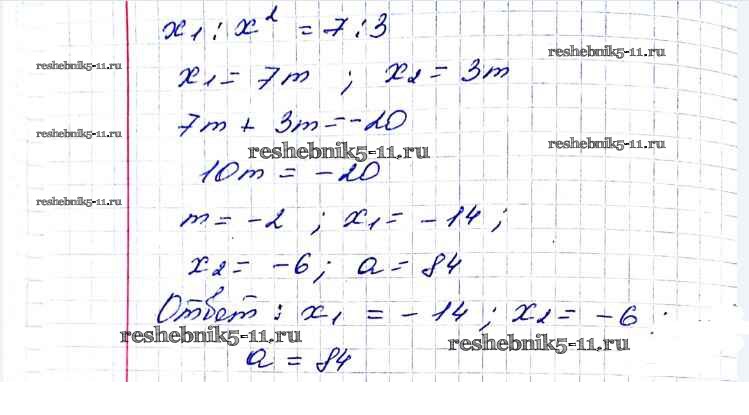 x₁ : x² = 7 : 3
reshebnik5-11.ru
reshebnik5-11.ru
x₁ = 7m ; x₂ = 3m
7m + 3m = -20
reshebnik5-11.ru
reshebnik5-11.ru
reshebnik5-11.ru
10m = -20
reshebnik5-11.ru
m = -2 ; x₁ = -14 ;
x₂ = -6 ; a = 84
Ответ : x₁ = -14 ; x₂ = -6 ;
reshebnik5-11.ru
reshebnik5-11.ru
a = 84